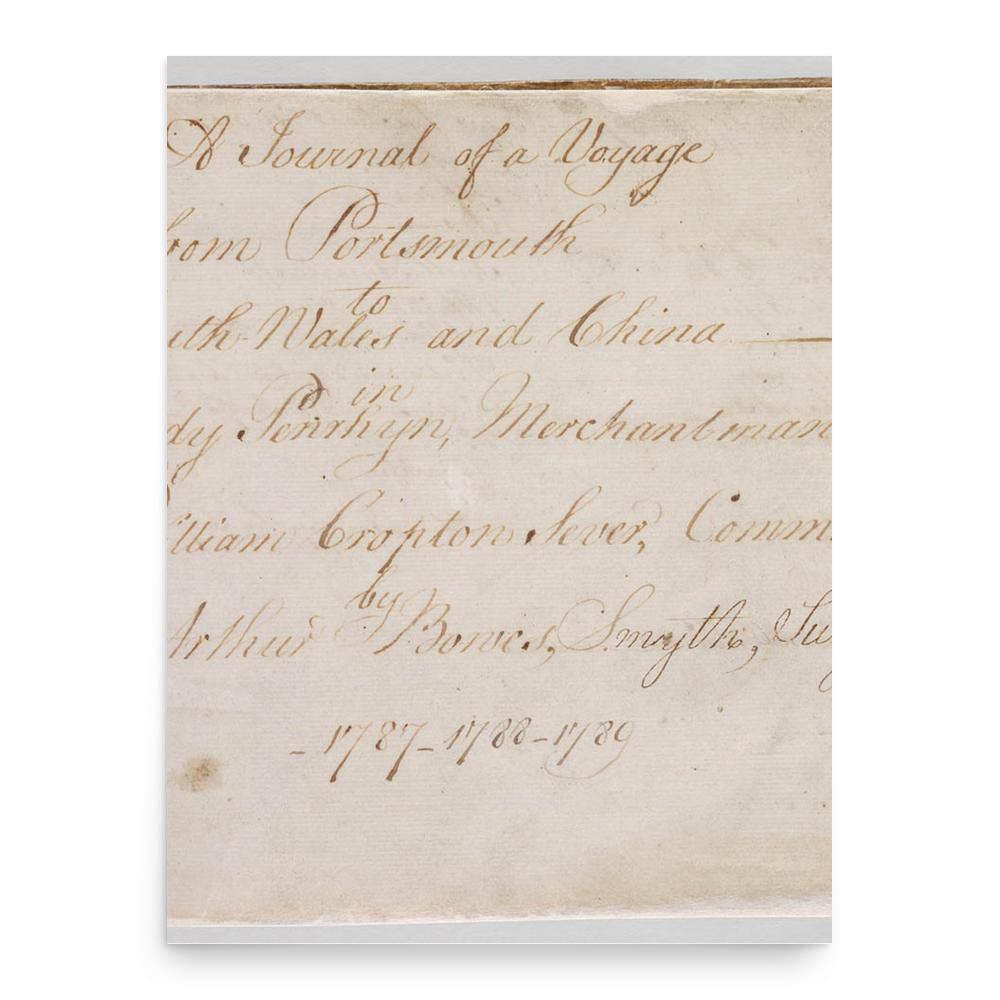 A Journal of a Voyage
from Portsmouth
to
uth Wales and China
in
dy Penrhyn, Merchantman
William Cropton Sever, Comm
by
Arthur Bowes, Smyth, Su
- 1787 - 1788 - 1789